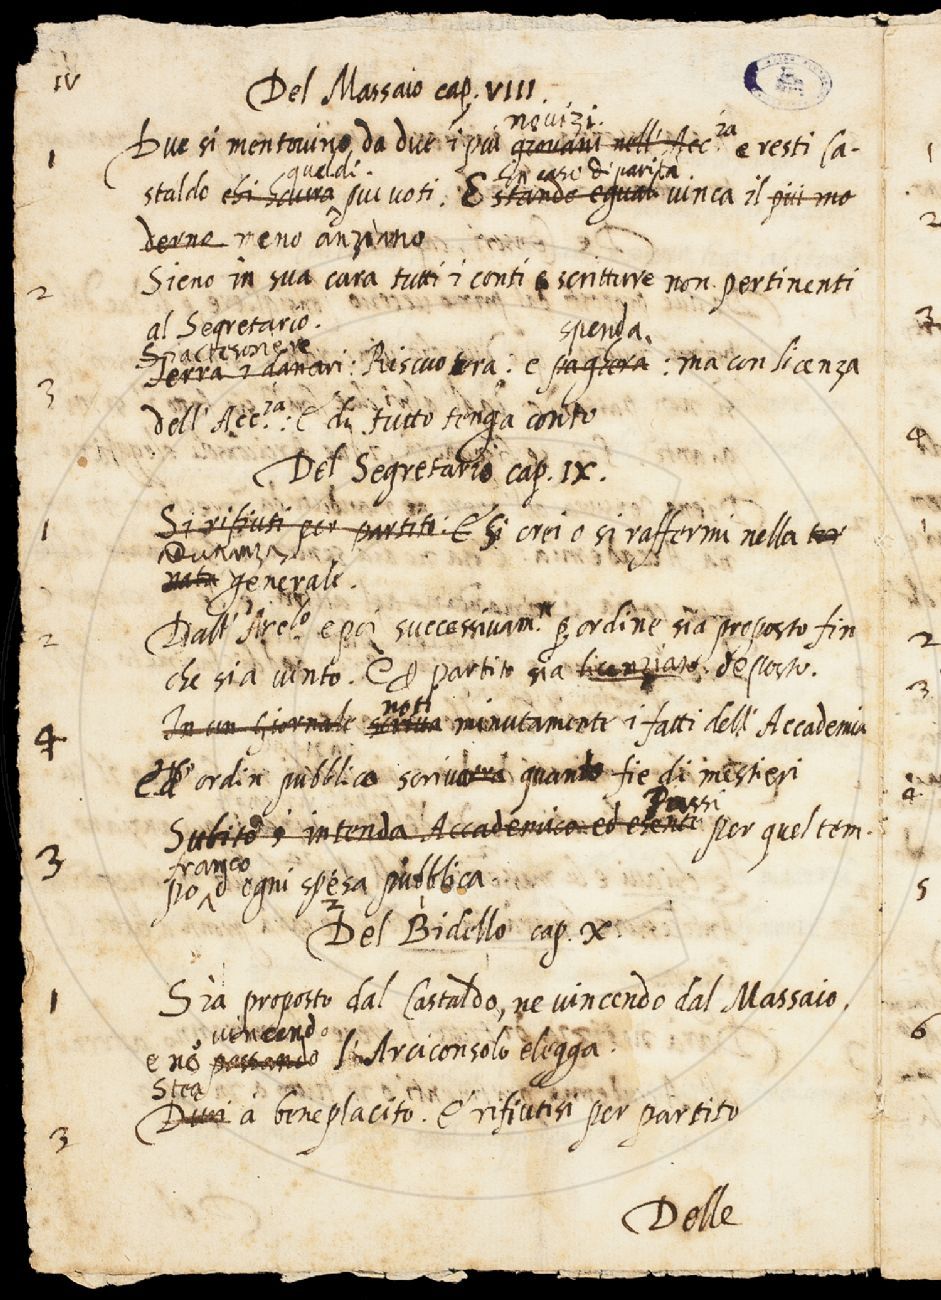 IV
Del Massaio cap. VIII
novizi.
1 Due si mentovino da due i più giovani nell' Acc.za e resti Ca-
quel di. In caso di parità.
staldo chi haura piu voti. E stando egual vinca il più mo
derno meno anziano
2 Sieno in sua cura tutti i conti e scritture non pertinenti
al Segretario.
spenda.
3 Terra i danari: Riscuotera: e paghera: ma con licenza
dell' Acc.za: E di tutto tenga conto
Del Segretario cap. IX.
1 Si rifiuti per partito. E Si crei o si raffermi nella tor
Dunanza
nata generale.
2 Dall' Arc.lo e poi successivam.te per ordine sia proposto fin
che sia vinto. E per partito sia licenziato. deposto.
noti
4 In un Giornale scriva minutamente i fatti dell' Accademia
E per ordin pubblico scriverà quanto fie di mestieri
Passi
3 Subito s' intenda Accademico ed esente per quel tem-
franco
po d ogni spesa pubblica
2 1
Del Bidello cap. X.
1 Sia proposto dal Castaldo, ne vincendo dal Massaio,
vincendo
e nō passando l' Arciconsolo elegga.
Stea
3 Duri à beneplacito. E rifiutisi per partito
Delle
1
2
3
4
1
2
3
4
5
6